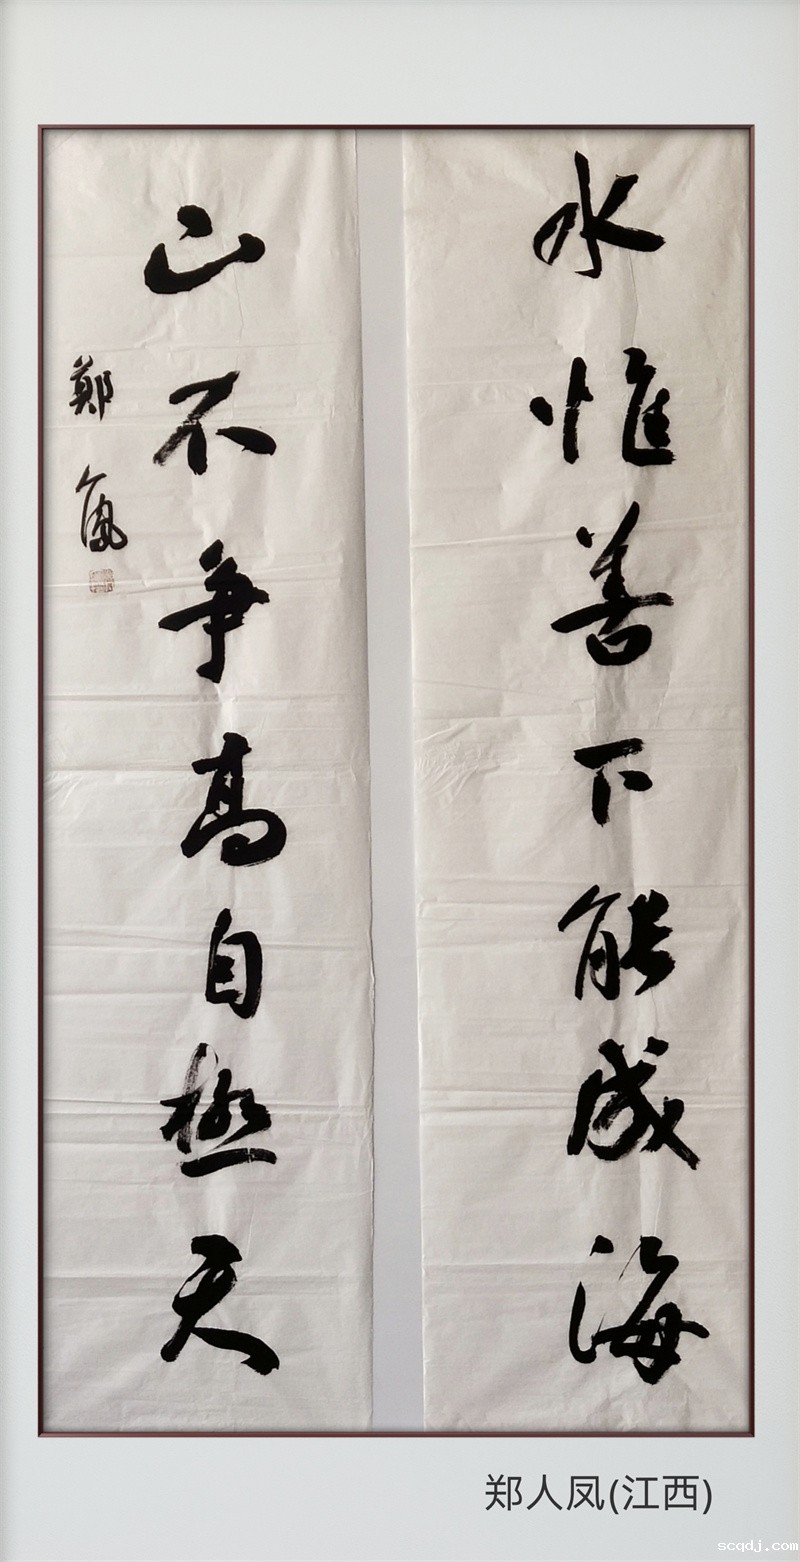 水惟善下能成海
山不争高自極天
鄭人鳳
郑人凤(江西)
scqdj.com